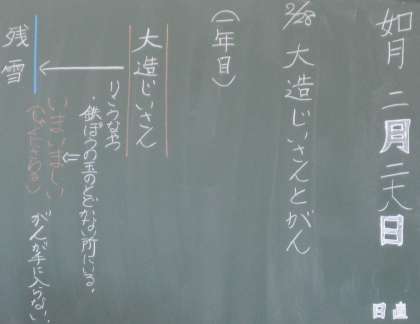 如月 二月二十八日
日直
2/28 大造じいさんとがん
(一年目)
大造じいさん
りこうなやつ
・鉄ぽうの玉のとどかない所にいる。
いまいましい
がんが手に入らない。
残雪